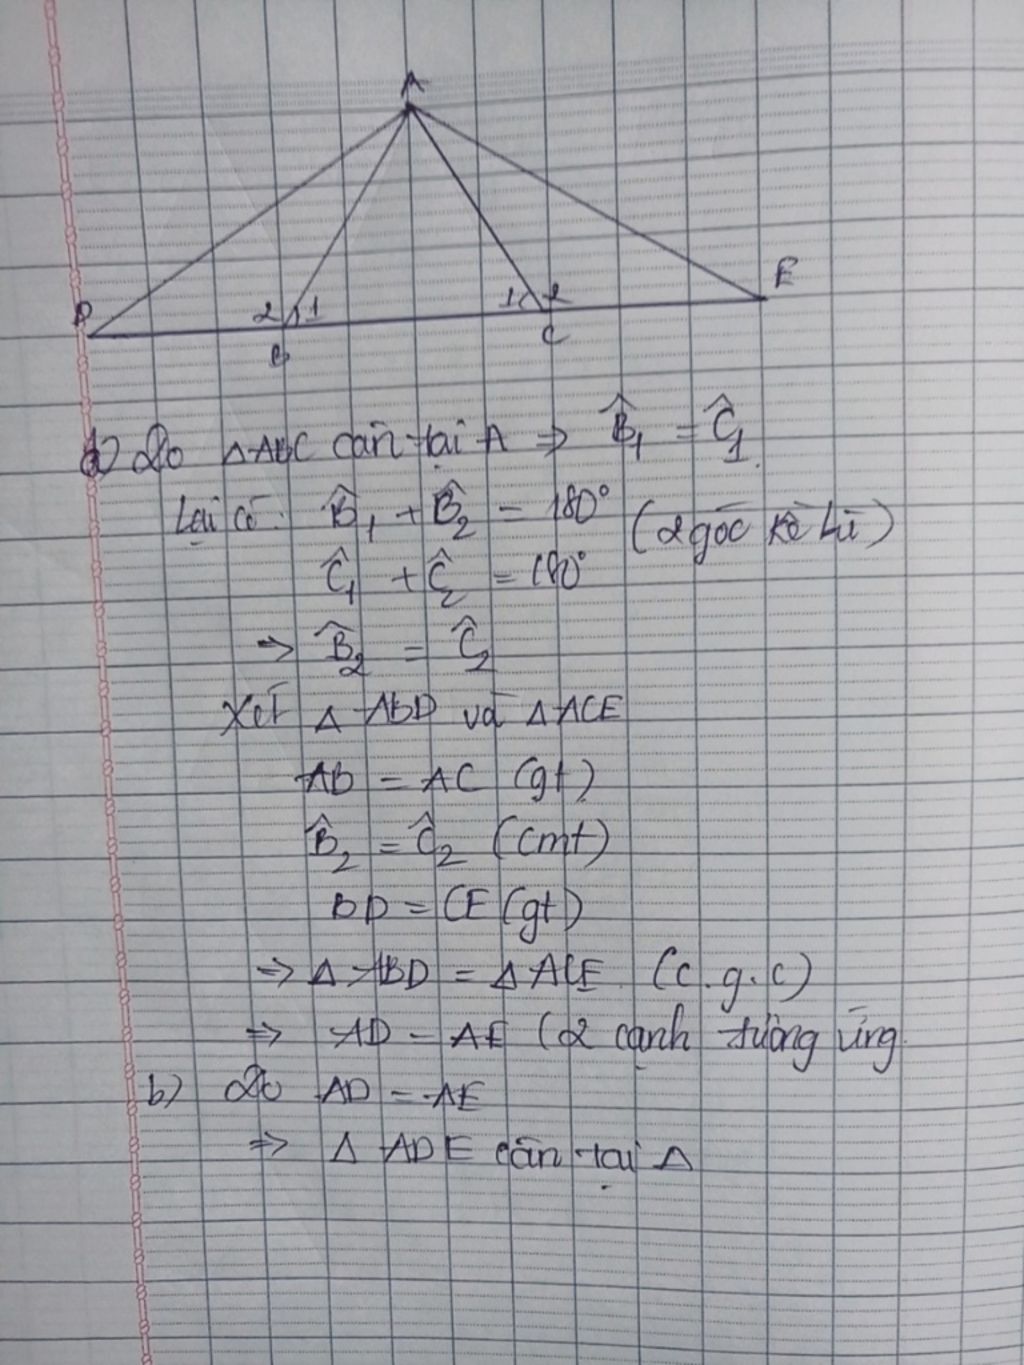 A
D
2 1
1 2
E
B
C
a) Do ΔABC cân tại A ⇒ B̂₁ = Ĉ₁.
Lại có: B̂₁ + B̂₂ = 180° (2 góc kề bù)
Ĉ₁ + Ĉ₂ = 180°
⇒ B̂₂ = Ĉ₂
Xét Δ ABD và Δ ACE
AB = AC (gt)
B̂₂ = Ĉ₂ (cmt)
BD = CE (gt)
⇒ Δ ABD = Δ ACE (c.g.c)
⇒ AD = AE (2 cạnh tương ứng
b) Do AD = AE
⇒ Δ ADE cân tại A